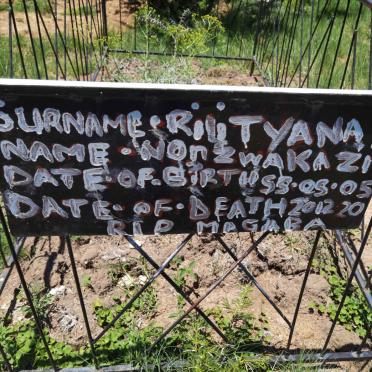 SURNAME. RIITYANA
NAME. NONZWAKAZI
DATE OF. BIRTH 55.05.05
DATE. OF. DEATH 2012.20
RIP MAGABA